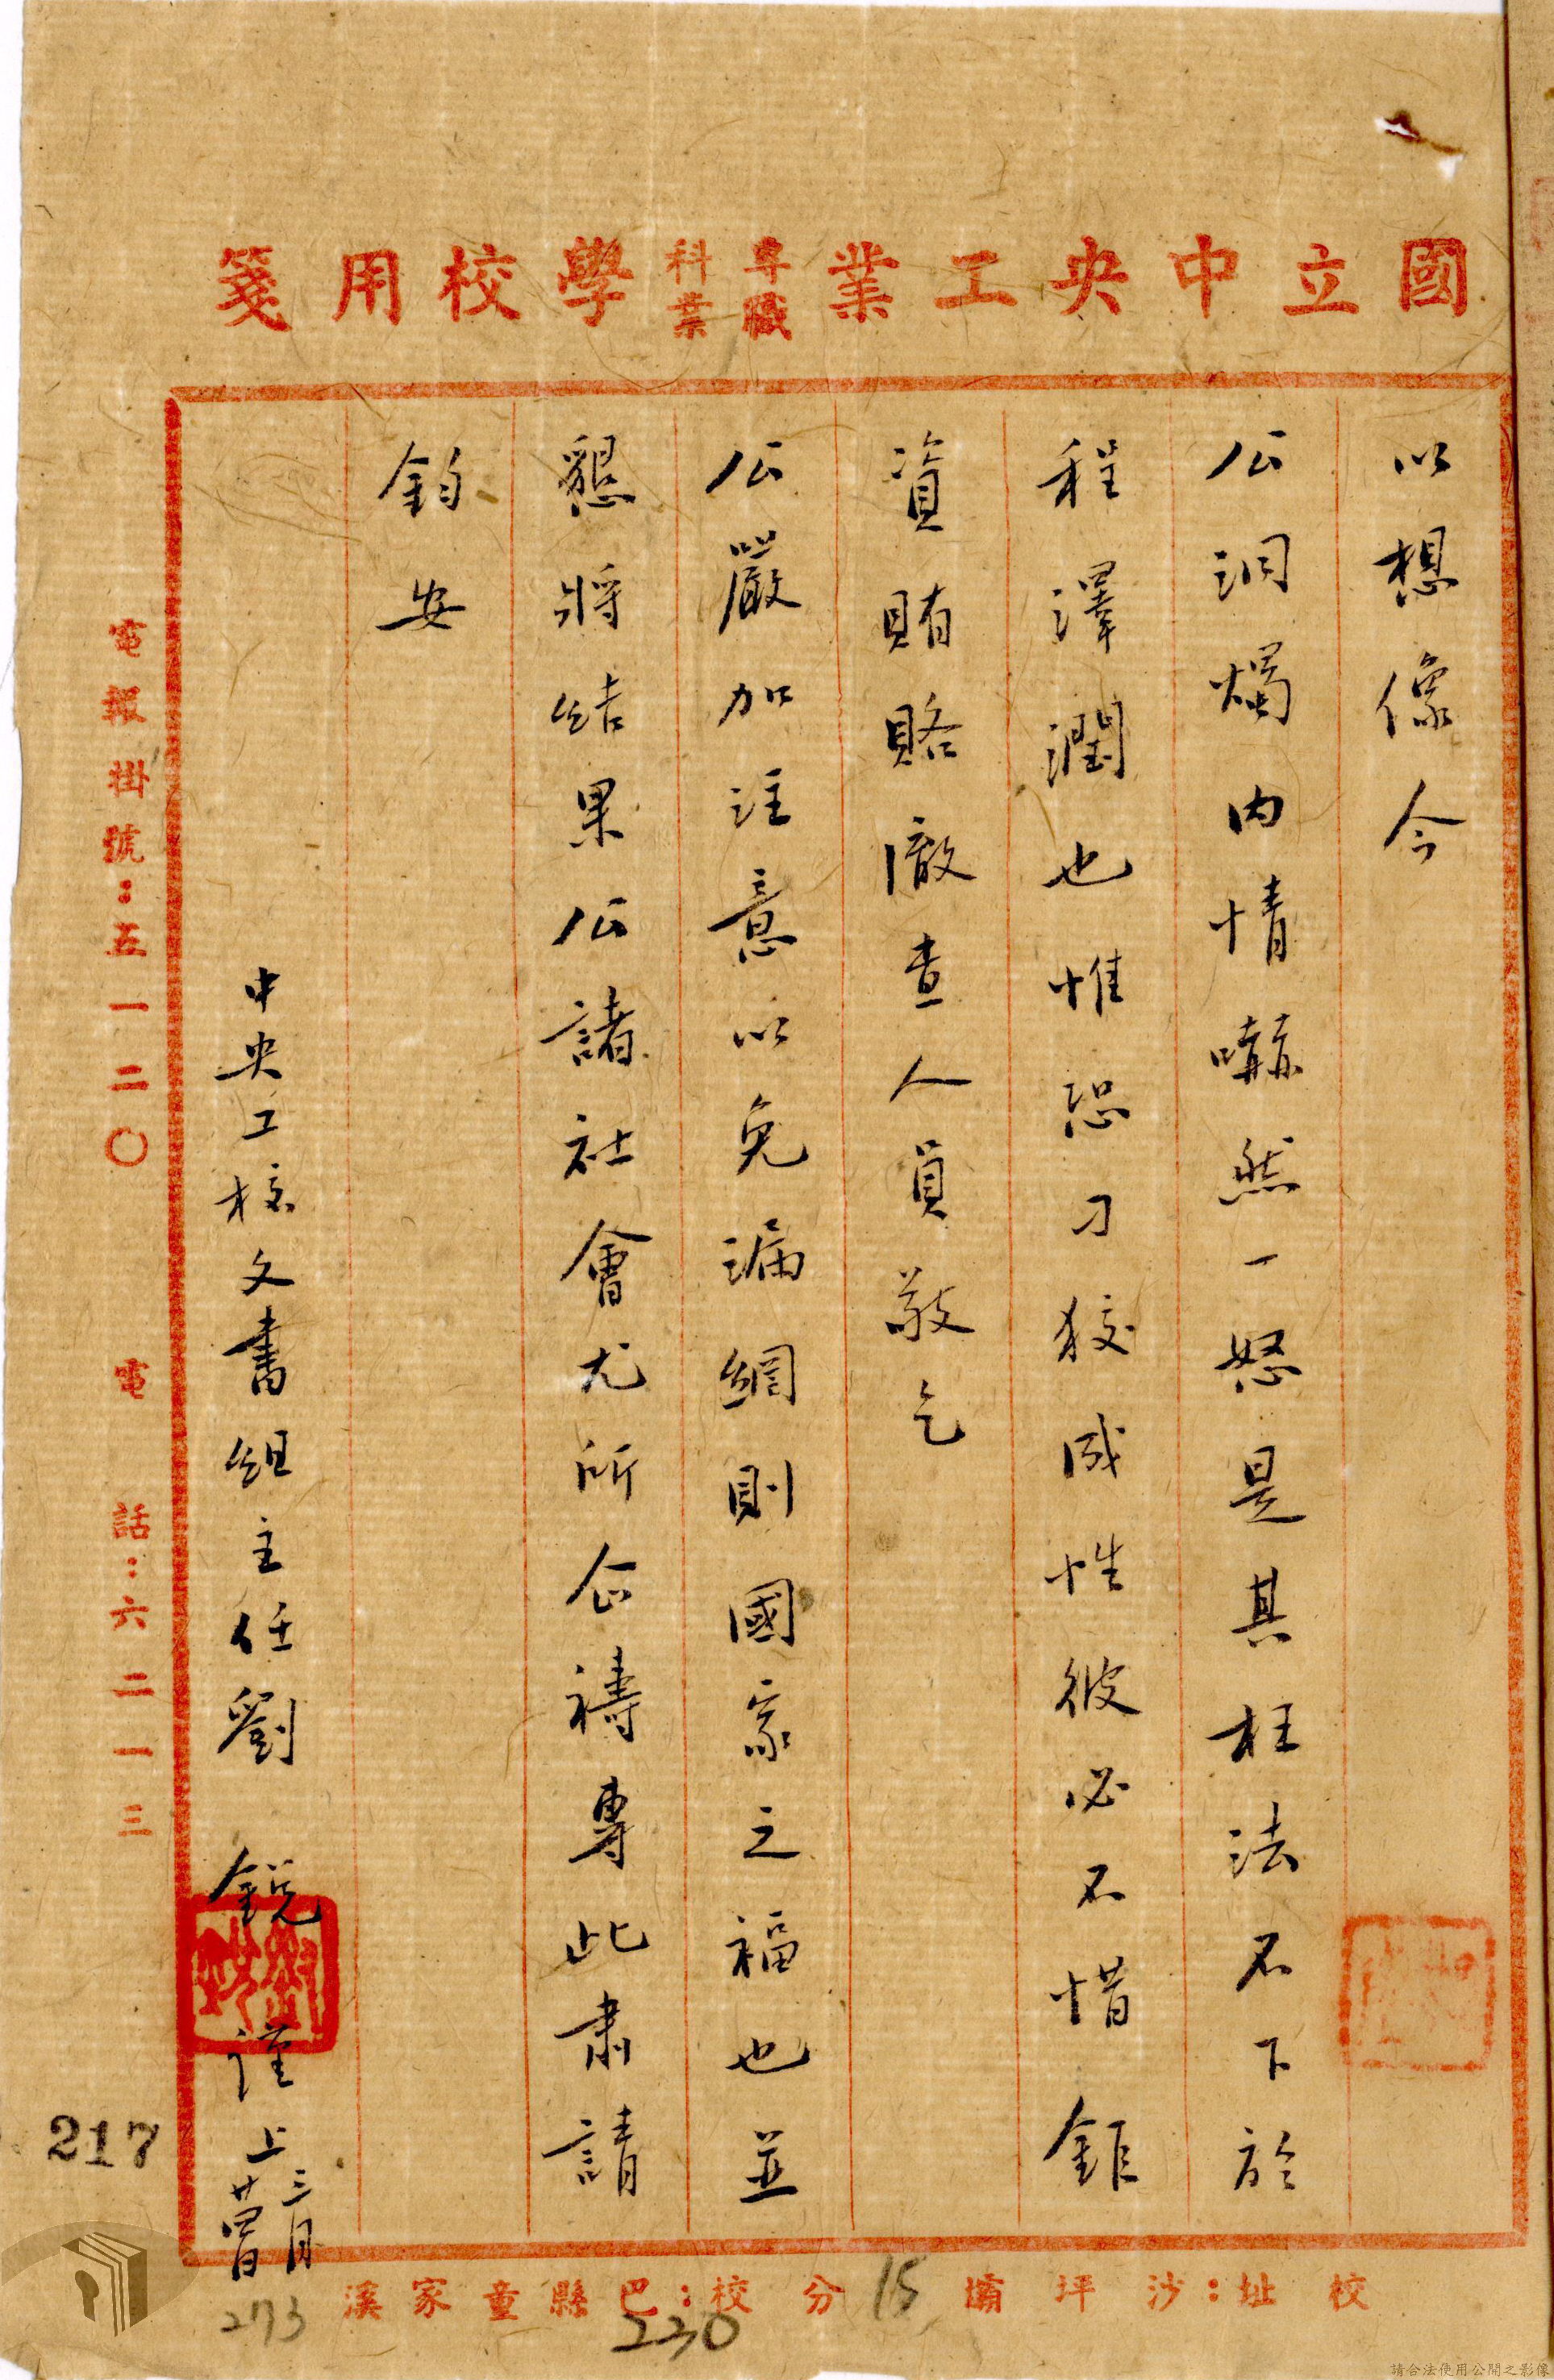 國立中央工業專科職業學校用箋
以想像今
公洞燭內情嚇然一怒是其枉法不下於
程澤潤也惟恐刁狡成性彼必不惜鉅
資賄賂澈查人員敬乞
公嚴加注意以免漏網則國家之福也並
懇將結果公諸社會尤所企禱專此肅請
鈞安
中央工校文書組主任劉銳謹上三月廿四日
電報掛號：五一二〇 電話：六二一三
校址：沙坪壩 分校：巴縣童家溪
15
230
273
217
請合法使用公開之影像